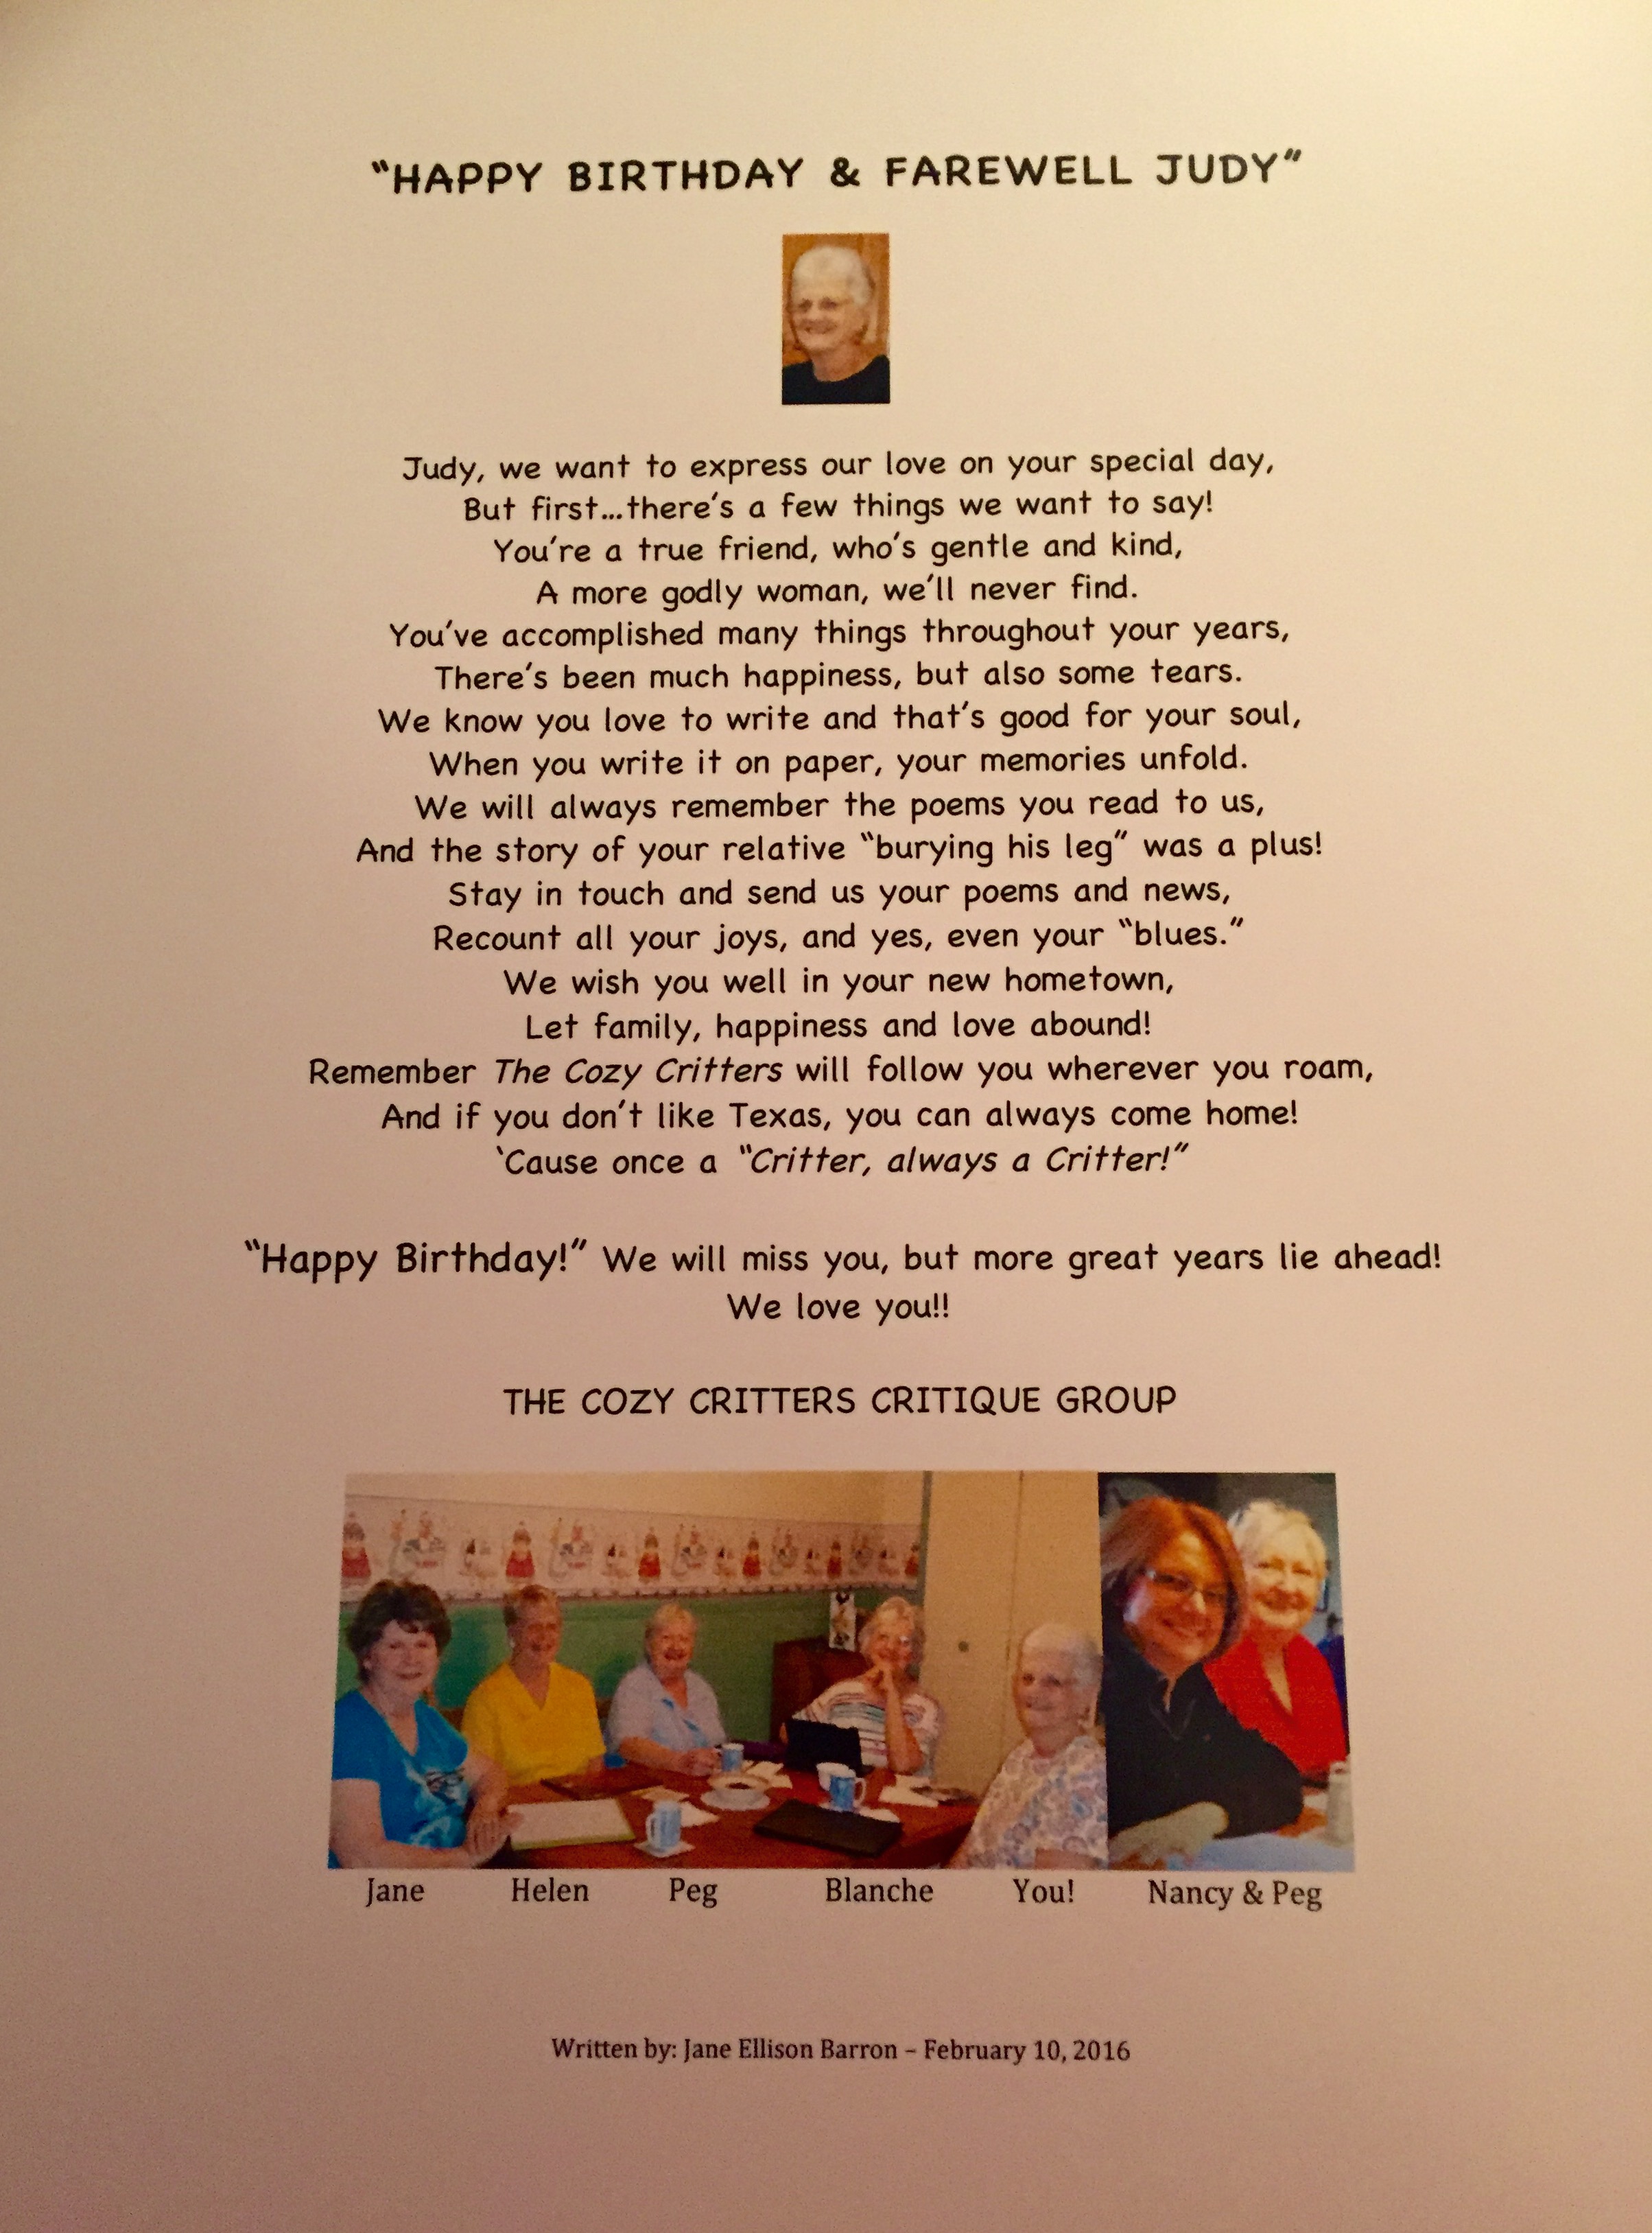 “HAPPY BIRTHDAY & FAREWELL JUDY”
Judy, we want to express our love on your special day,
But first…there’s a few things we want to say!
You’re a true friend, who’s gentle and kind,
A more godly woman, we’ll never find.
You’ve accomplished many things throughout your years,
There’s been much happiness, but also some tears.
We know you love to write and that’s good for your soul,
When you write it on paper, your memories unfold.
We will always remember the poems you read to us,
And the story of your relative “burying his leg” was a plus!
Stay in touch and send us your poems and news,
Recount all your joys, and yes, even your “blues.”
We wish you well in your new hometown,
Let family, happiness and love abound!
Remember The Cozy Critters will follow you wherever you roam,
And if you don’t like Texas, you can always come home!
‘Cause once a “Critter, always a Critter!”
“Happy Birthday!” We will miss you, but more great years lie ahead!
We love you!!
THE COZY CRITTERS CRITIQUE GROUP
Jane Helen Peg Blanche You! Nancy & Peg
Written by: Jane Ellison Barron – February 10, 2016